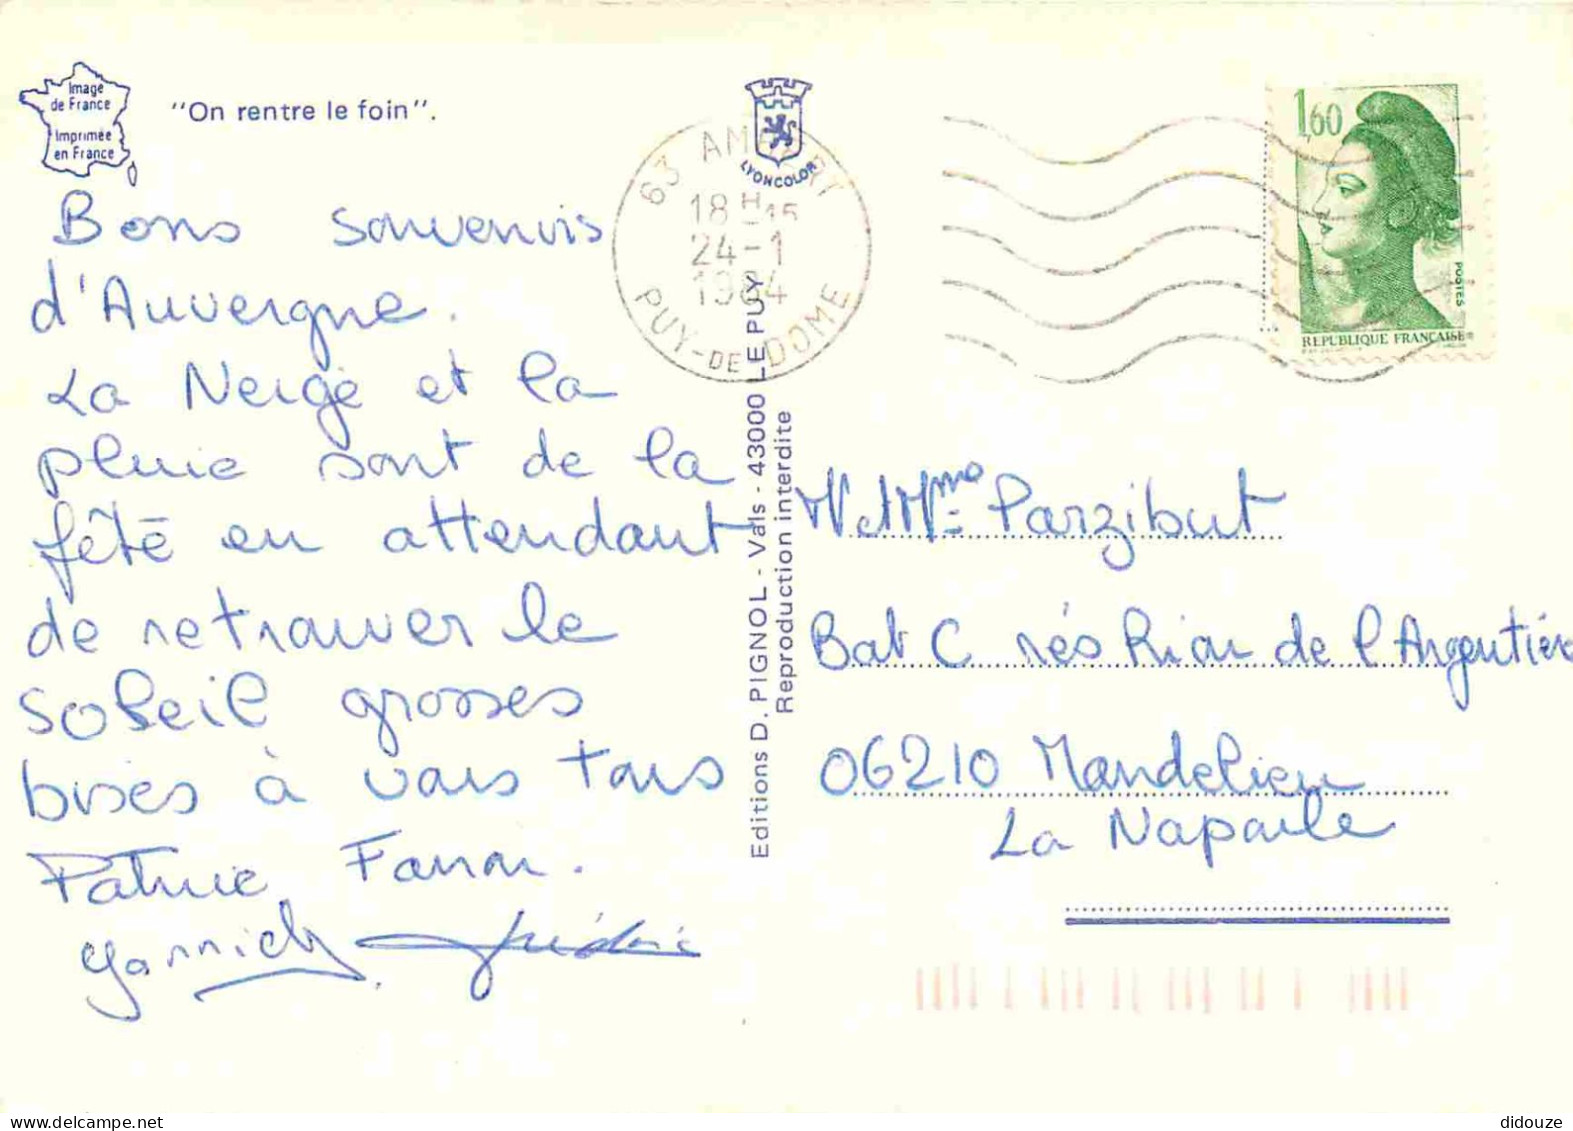 Image
de France
Imprimée
en France
"On rentre le foin".
LYONCOLOR
63 AMBERT
18H15
24-1
1984
PUY-DE-DOME
1,60
POSTES
REPUBLIQUE FRANÇAISE
Bons souvenirs
d'Auvergne.
La Neige et la
pluie sont de la
fête en attendant
de retrouver le
soleil grosses
bises à vous tous
Patricie
Yannick Frédéric
Editions D. PIGNOL - Vals - 43000 LE PUY
Reproduction interdite
M et Mme Parzibut
Bat C rés Rian de l'Argentière
06210 Mandelieu
La Napoule
didouze